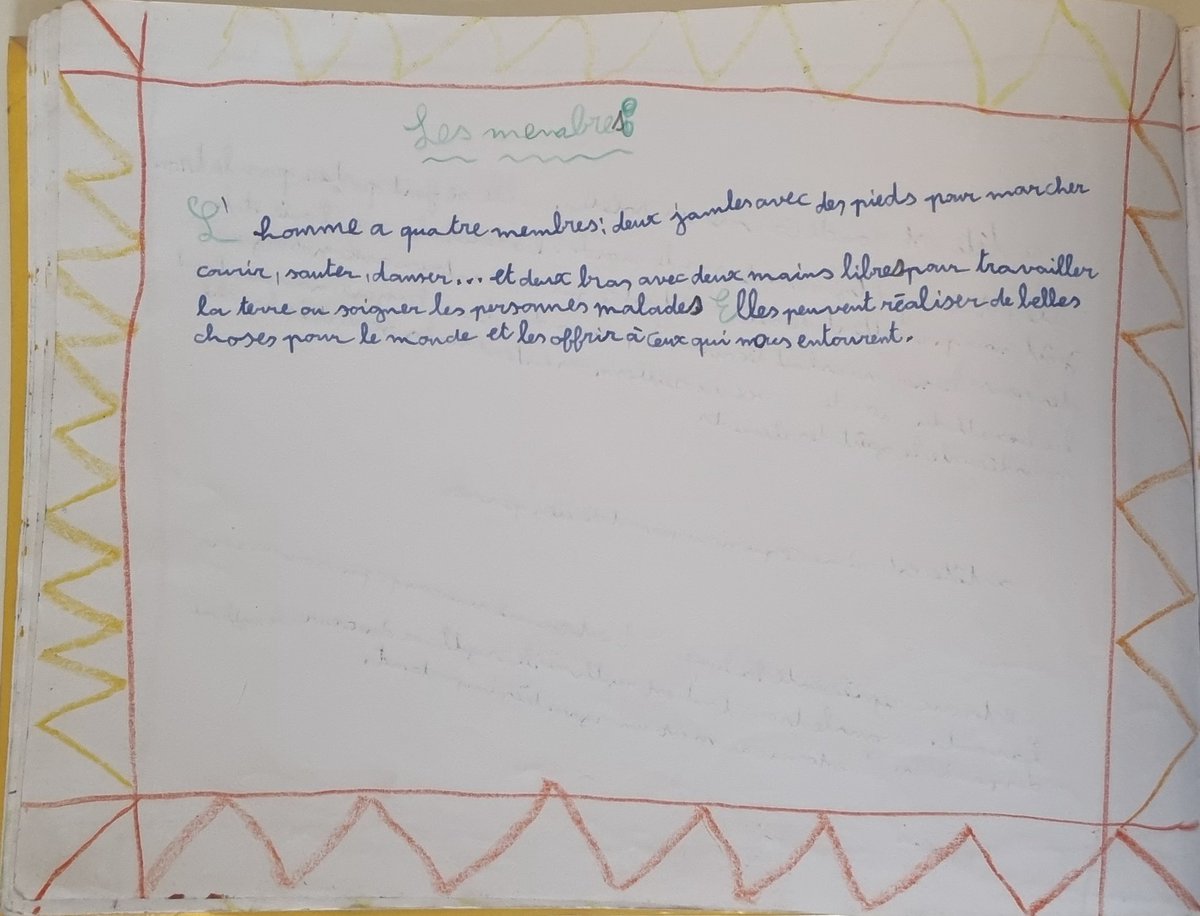 Les membres:
L'homme a quatre membres: deux jambes avec des pieds pour marcher
courir, sauter, danser... et deux bras avec deux mains libres pour travailler
la terre ou soigner les personnes malades Elles peuvent réaliser de belles
choses pour le monde et les offrir à ceux qui nous entourent.